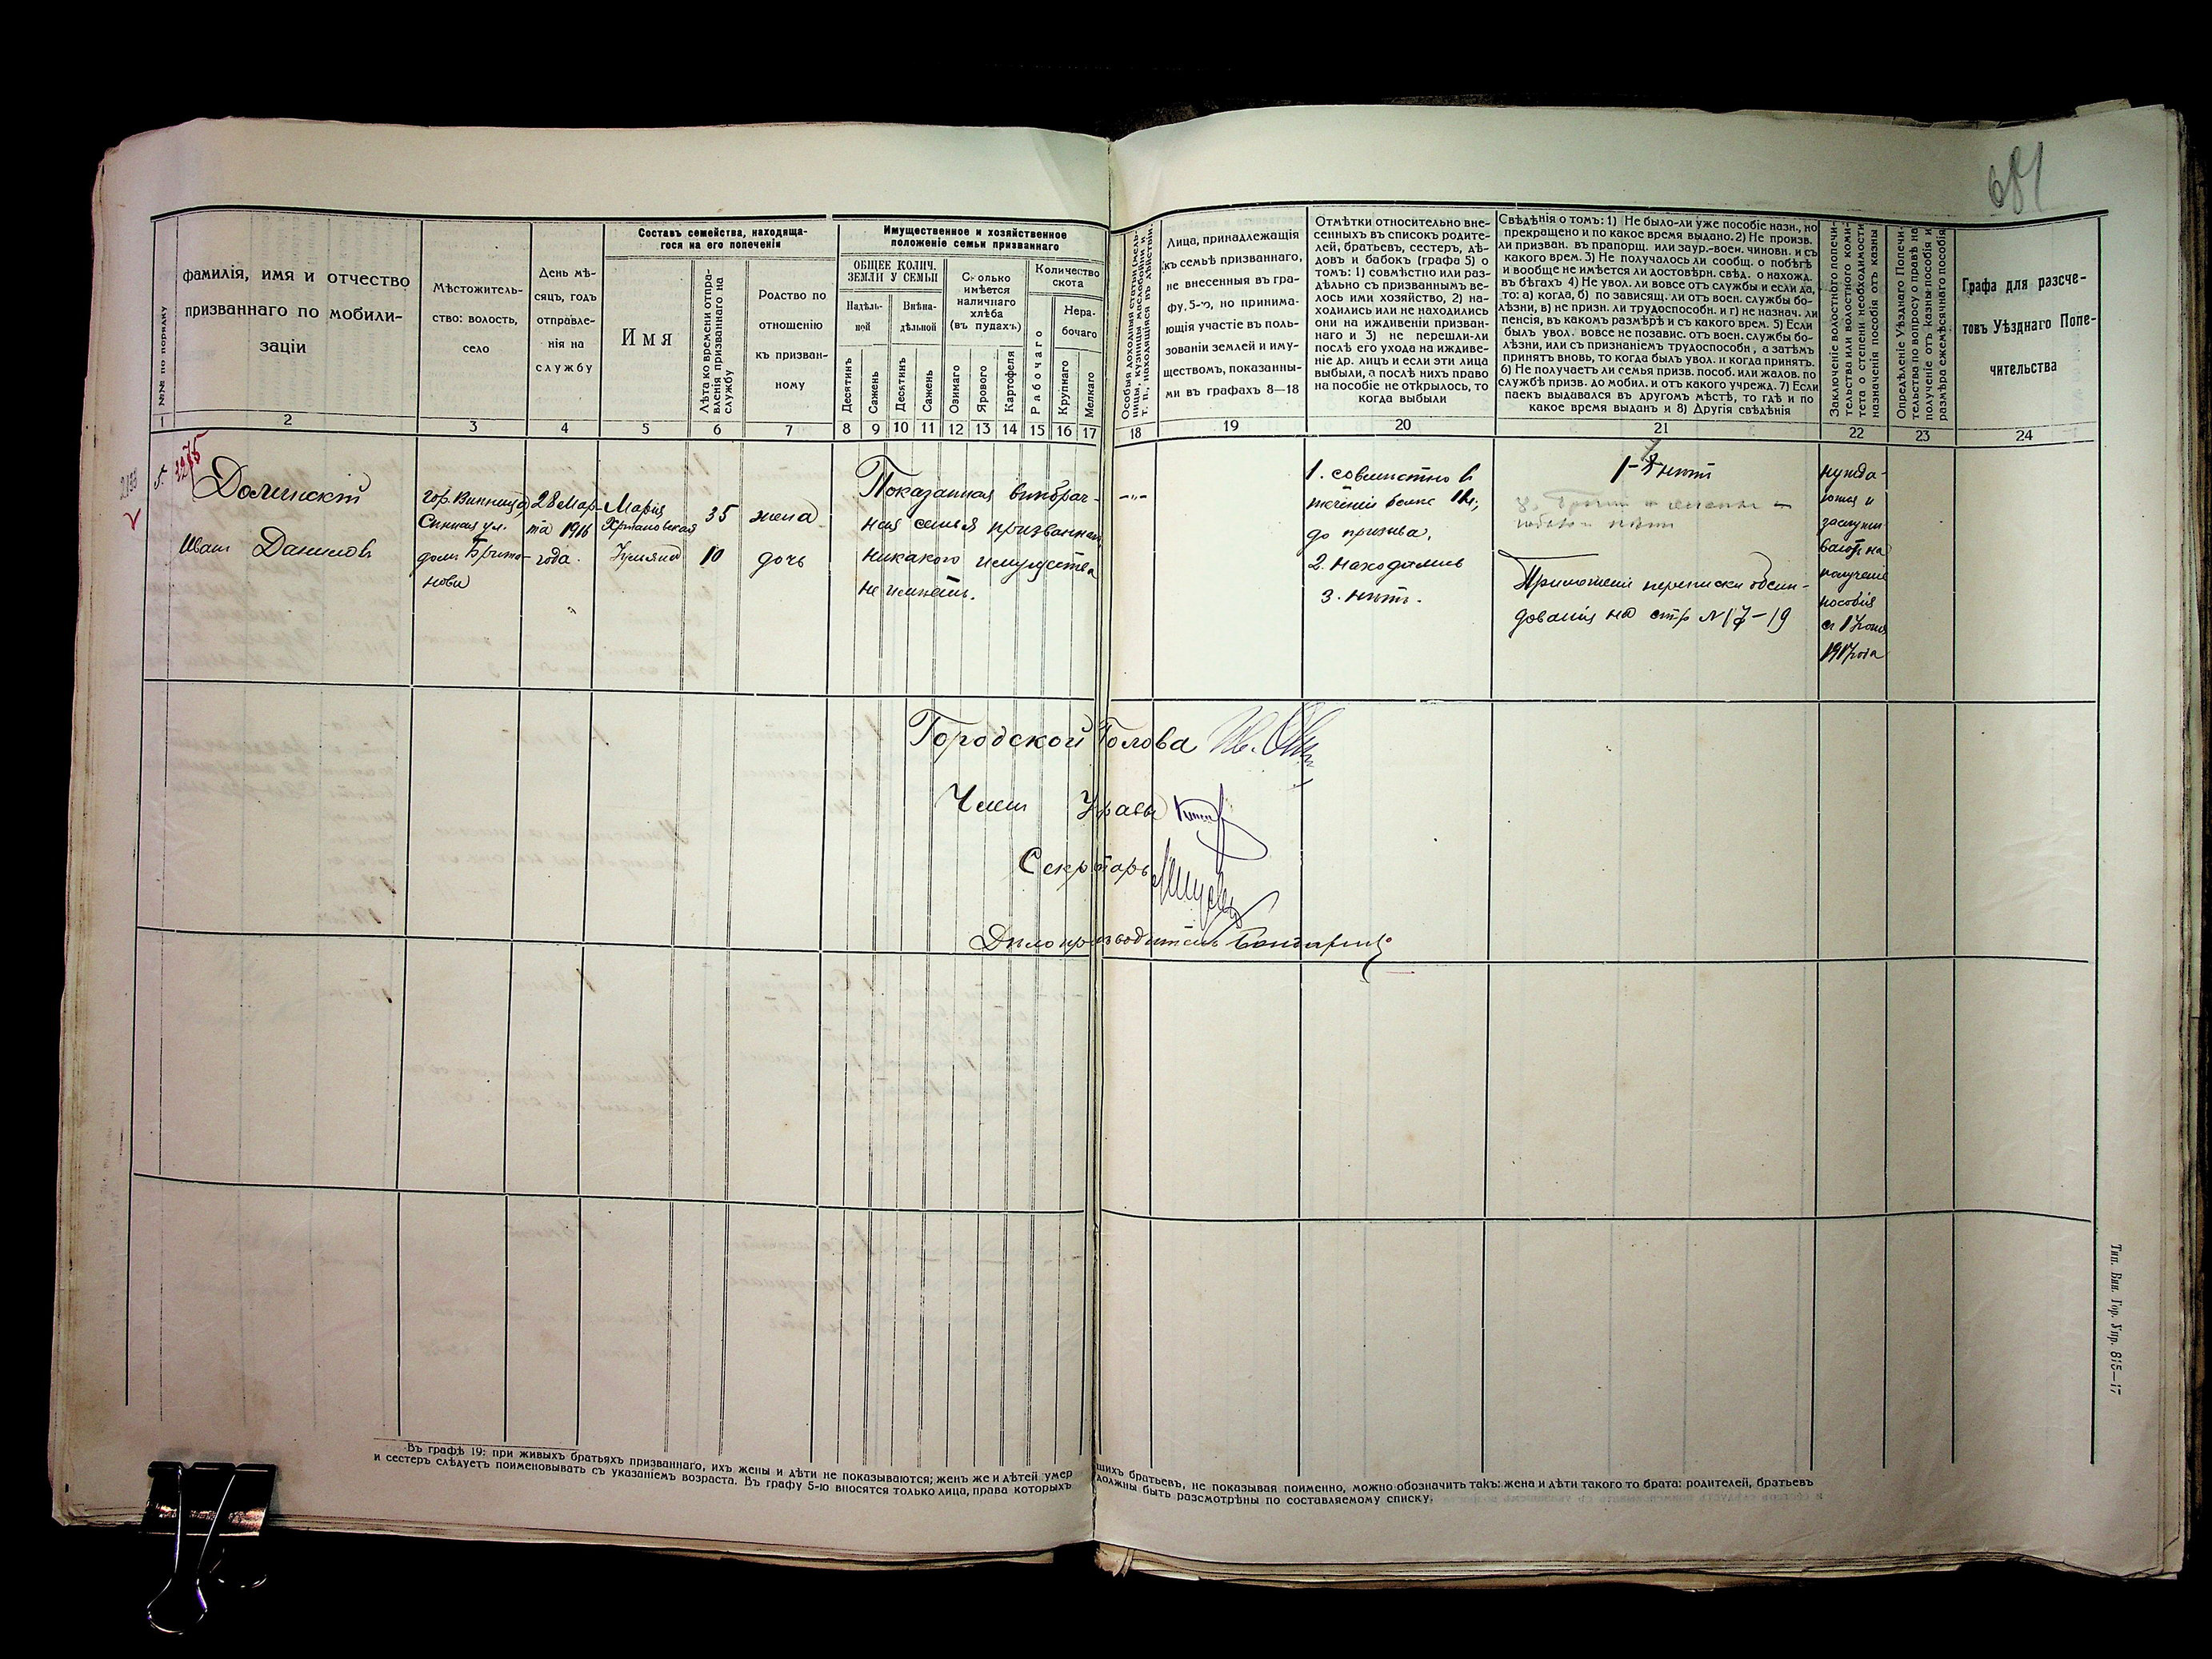 681
№№ по порядку
фамилія, имя и отчество
призваннаго по мобили-
заціи
Мѣстожитель-
ство: волость,
село
День мѣ-
сяцъ, годъ
отправле-
нія на
службу
Составъ семейства, находяща-
гося на его попеченіи
Имя
Лѣта ко времени отпра-
вленія призваннаго на
службу
Родство по
отношенію
къ призван-
ному
Имущественное и хозяйственное
положеніе семьи призваннаго
ОБЩЕЕ КОЛИЧ.
ЗЕМЛИ У СЕМЬИ
Надѣль-
ной
Внѣна-
дѣльной
Десятинъ
Сажень
Десятинъ
Сажень
Сколько
имѣется
наличнаго
хлѣба
(въ пудахъ)
Озимаго
Ярового
Картофеля
Количество
скота
Рабочаго
Нера-
бочаго
Крупнаго
Мелкаго
Особыя доходныя статьи (мель-
ницы, кузницы маслобойни и
т. п., находящіяся въ дѣйствіи.
Лица, принадлежащія
къ семьѣ призваннаго,
не внесенныя въ гра-
фу, 5-ю, но принима-
ющія участіе въ поль-
зованіи землей и иму-
ществомъ, показанны-
ми въ графахъ 8—18
Отмѣтки относительно вне-
сенныхъ въ списокъ родите-
лей, братьевъ, сестеръ, дѣ-
довъ и бабокъ (графа 5) о
томъ: 1) совмѣстно или раз-
дѣльно съ призваннымъ ве-
лось ими хозяйство, 2) на-
ходились или не находились
они на иждивеніи призван-
наго и 3) не перешли-ли
послѣ его ухода на иждиве-
ніе др. лицъ и если эти лица
выбыли, а послѣ нихъ право
на пособіе не открылось, то
когда выбыли
Свѣдѣнія о томъ: 1) Не было-ли уже пособіе назн., но
прекращено и по какое время выдано. 2) Не произв.
ли призван. въ прапорщ. или заур.-воен. чиновн. и съ
какого врем. 3) Не получалось ли сообщ. о побѣгѣ
и вообще не имѣется ли достовѣрн. свѣд. о нахожд.
въ бѣгахъ 4) Не увол. ли вовсе отъ службы и если да,
то: а) когда, б) по зависящ. ли отъ воен. службы бо-
лѣзни, в) не призн. ли трудоспособн. и г) не назнач. ли
пенсія, въ какомъ размѣрѣ и съ какого врем. 5) Если
былъ увол. вовсе не позавис. отъ воен. службы бо-
лѣзни, или съ признаніемъ трудоспособн, а затѣмъ
принятъ вновь, то когда былъ увол. и когда принятъ.
6) Не получаетъ ли семья призв. пособ. или жалов. по
службѣ призв. до мобил. и отъ какого учрежд. 7) Если
паекъ выдавался въ другомъ мѣстѣ, то гдѣ и по
какое время выданъ и 8) Другія свѣдѣнія
Заключеніе волостного попечи-
тельства или волостного коми-
тета о степени необходимости
назначенія пособія отъ казны
Опредѣленіе Уѣзднаго Попечи-
тельства по вопросу о правѣ на
полученіе отъ казны пособія и
размѣра ежемѣсячнаго пособія
Графа для разсче-
товъ Уѣзднаго Попе-
чительства
1 2 3 4 5 6 7 8 9 10 11 12 13 14 15 16 17 18 19 20 21 22 23 24
5.
Долинскій
Иванъ Даниловъ
гор. Винница
Сѣнная ул.
28 Мар-
та 1916
года.
Марія
35
жена
10
дочь
Показанная внѣбрач-
ная семья призваннаго
никакого имущества
не имѣетъ.
1. совмѣстно въ
теченіи болѣе 1 г.
до призыва.
2. находились
3. нѣтъ.
нѣтъ
дованія на стр №17—19
нужда-
ется и
заслужи
ваетъ на
полученіе
пособія
1917 года
Городской Голова
Членъ Управы
Секретарь
Дѣлопроизводитель
Въ графѣ 19: при живыхъ братьяхъ призваннаго, ихъ жены и дѣти не показываются; женъ же и дѣтей умер
шихъ братьевъ, не показывая поименно, можно обозначить такъ: жена и дѣти такого то брата: родителей, братьевъ
и сестеръ слѣдуетъ поименовывать съ указаніемъ возраста. Въ графу 5-ю вносятся только лица, права которыхъ
должны быть разсмотрѣны по составляемому списку.
Тип. Вин. Гор. Упр. 815—17